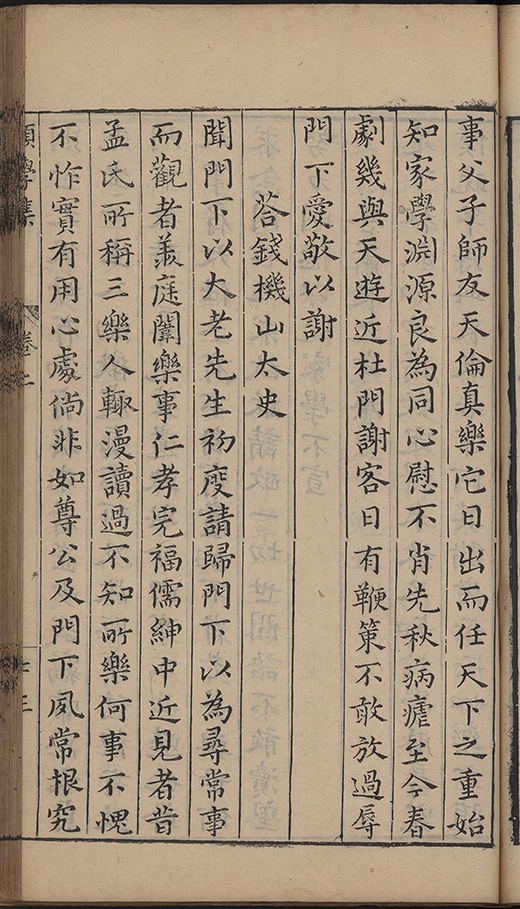 事父子師友天倫真樂它日出而任天下之重始
知家學淵源良為同心慰不肖先秋病瘧至今春
劇幾與天遊近杜門謝客日有鞭策不敢放過辱
門下愛敬以謝
荅錢機山太史
聞門下以大老先生初度請歸門下以為尋常事
而觀者羨庭闈樂事仁孝完福儒紳中近見者昔
孟氏所稱三樂人輒漫讀過不知所樂何事不愧
不怍實有用心處倘非如尊公及門下夙常根究
學集
卷二
十三